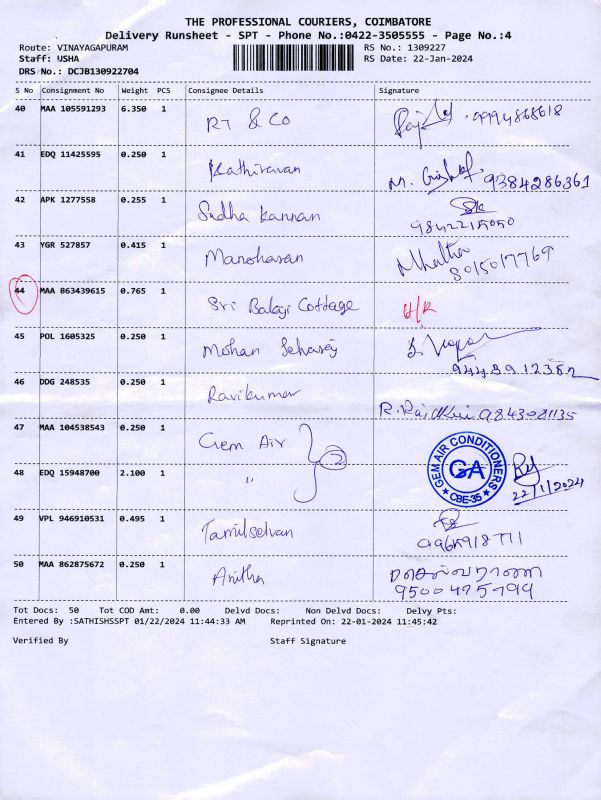 THE PROFESSIONAL COURIERS, COIMBATORE
Delivery Runsheet - SPT - Phone No.:0422-3505555 - Page No.:4
Route: VINAYAGAPURAM RS No.: 1309227
Staff: USHA RS Date: 22-Jan-2024
DRS No.: DCJB130922704
S No Consignment No Weight PCS Consignee Details Signature
40 MAA 105591293 6.350 1 RT & Co
41 EDQ 11425595 0.250 1 Kathiravan 9384286361
42 APK 1277558 0.255 1 Sudha Kannan
9842215050
43 YGR 527857 0.415 1 Manoharan
8015017769
44 MAA 863439615 0.765 1 Sri Balaji Cottage
45 POL 1605325 0.250 1 Mohan
46 DDG 248535 0.250 1 Ravikumar
9843081135
47 MAA 104538543 0.250 1 Gem Air 2
GEM AIR CONDITIONERS
GA
CBE-35
48 EDQ 15948700 2.100 1 "
22/1/2024
49 VPL 946910531 0.495 1 Tamilselvan
50 MAA 862875672 0.250 1 Anitha
Tot Docs: 50 Tot COD Amt: 0.00 Delvd Docs: Non Delvd Docs: Delvy Pts:
Entered By :SATHISHSSPT 01/22/2024 11:44:33 AM Reprinted On: 22-01-2024 11:45:42
Verified By Staff Signature